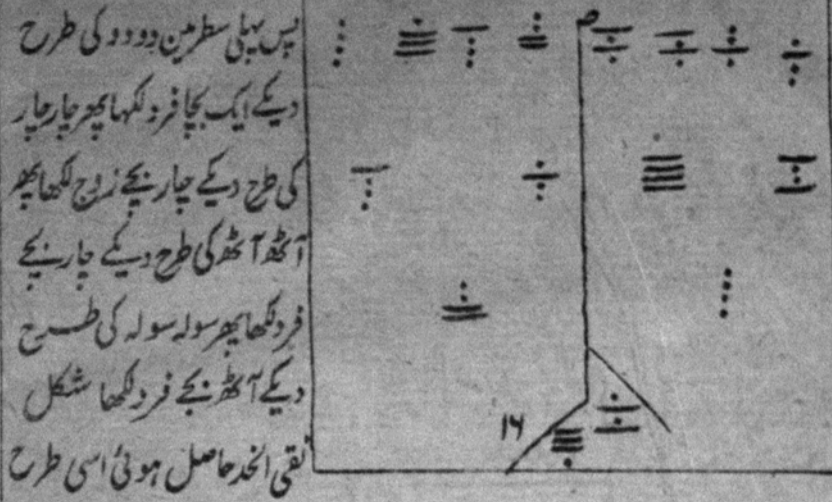 پس پہلی سطر مین دو دو کی طرح
دیکے ایک بچا فرد لکھا پھر چار چار
کی طرح دیکے چار بچے زوج لکھا پھر
آٹھ آٹھ کی طرح دیکے چار بچے
فرد لکھا پھر سولہ سولہ کی طرح
دیکے آٹھ بچے فرد لکھا شکل
نقی الخد حاصل ہوئی اسی طرح
۱۶